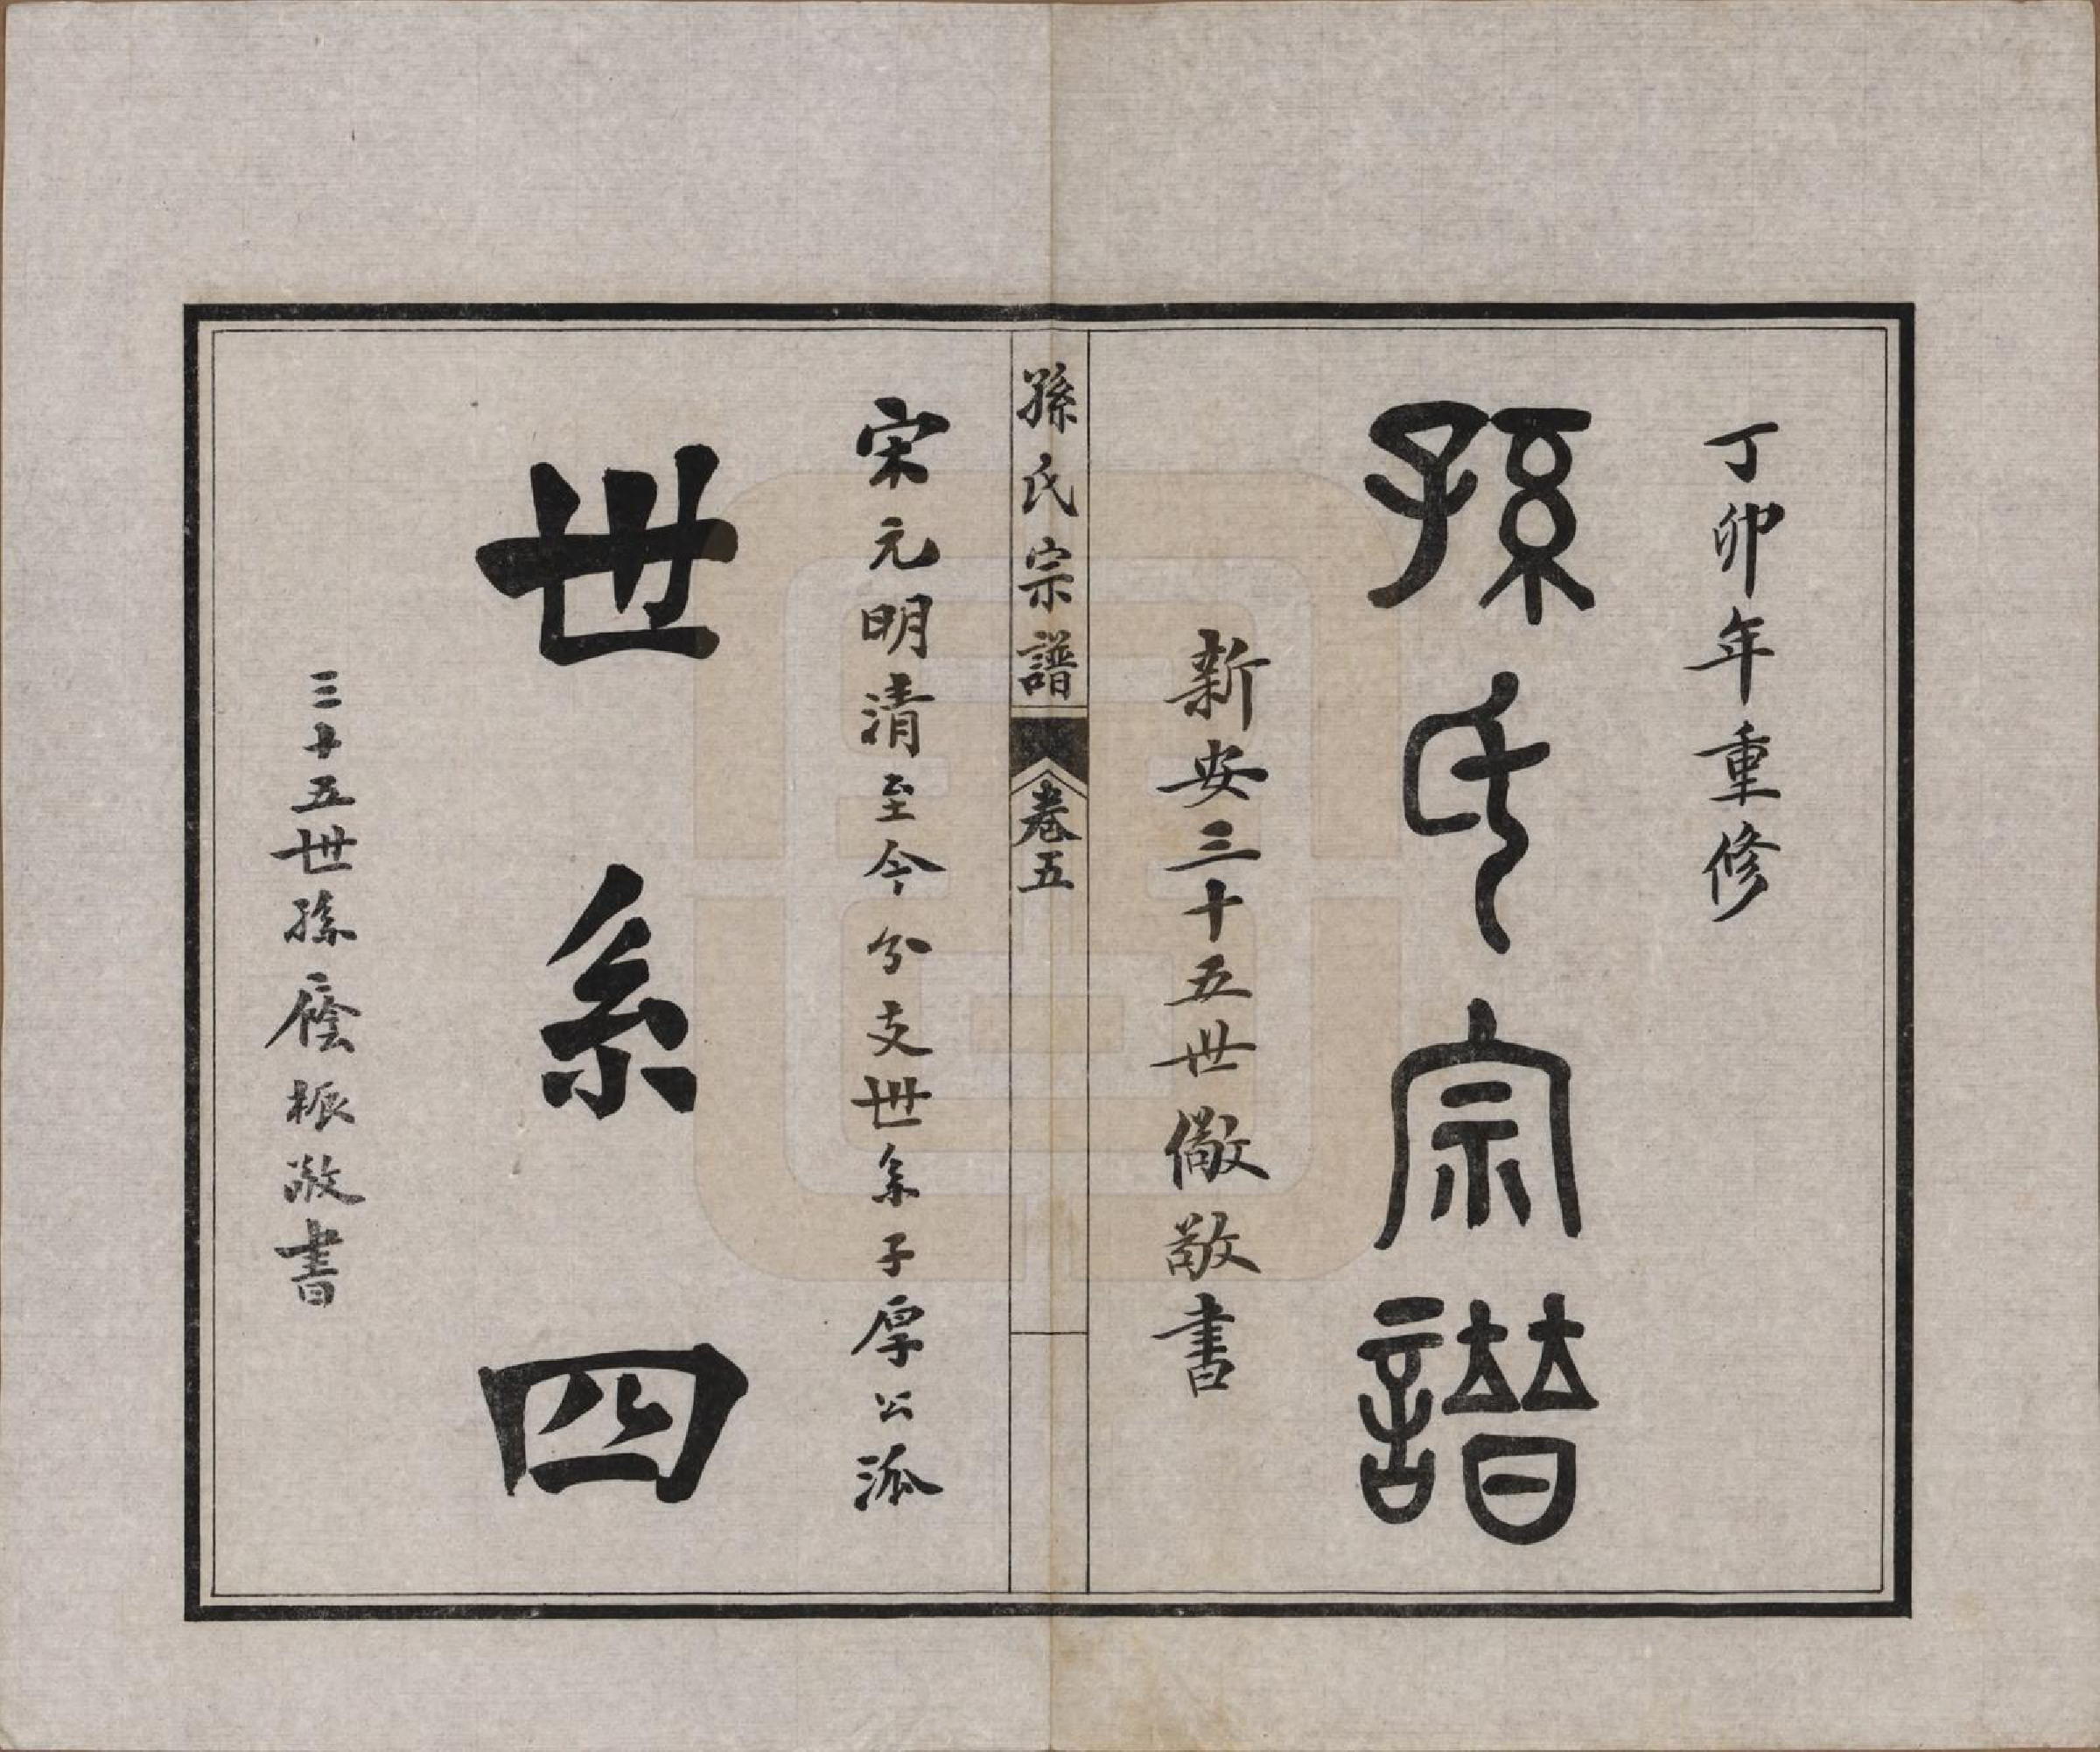 丁卯年重修
孫氏宗譜
新安三十五世儆敬書
孫氏宗譜 卷五
宋元明清至今分支世系子厚公派
世系四
三十五世孫廕振敬書